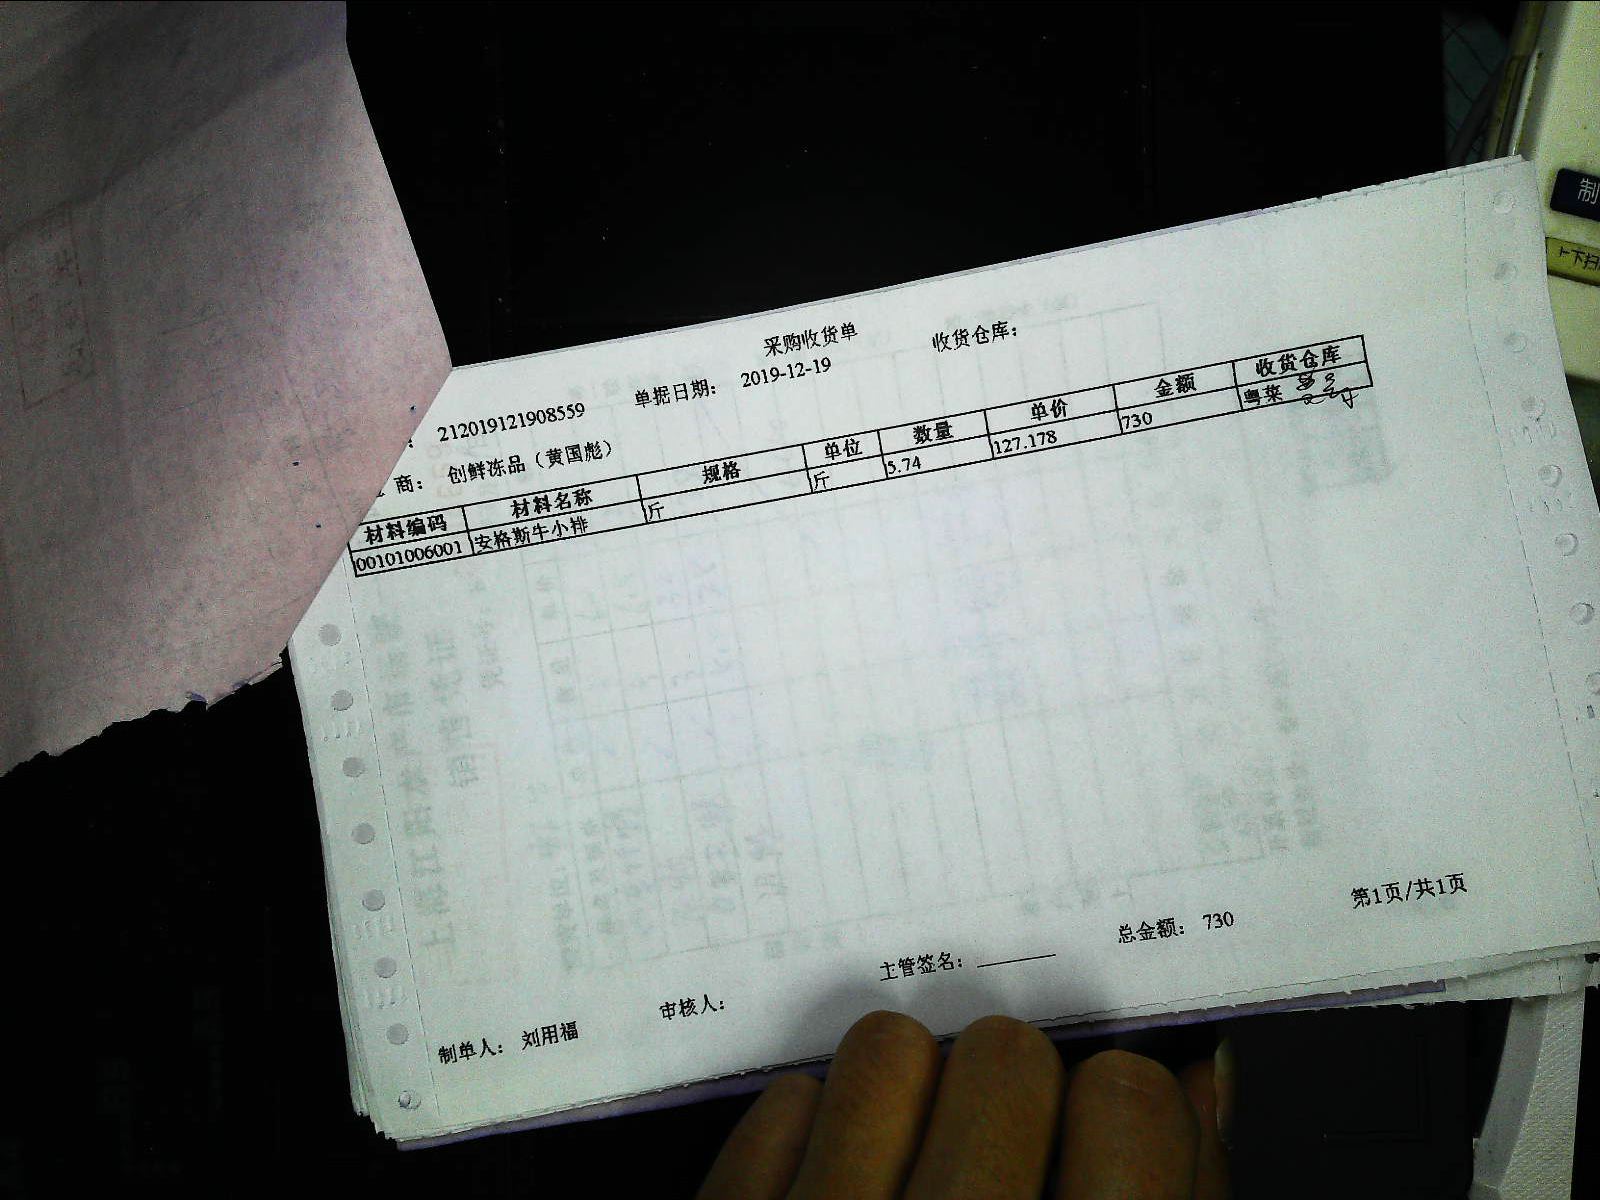 采购收货单
收货仓库：
: 212019121908559 单据日期： 2019-12-19
商： 创鲜冻品（黄国彪）
材料编码 材料名称 规格 单位 数量 单价 金额 收货仓库
00101006001 安格斯牛小排 斤 斤 5.74 127.178 730 粤菜
第1页/共1页
制单人： 刘用福 审核人： 主管签名： 总金额： 730
制
上下扫